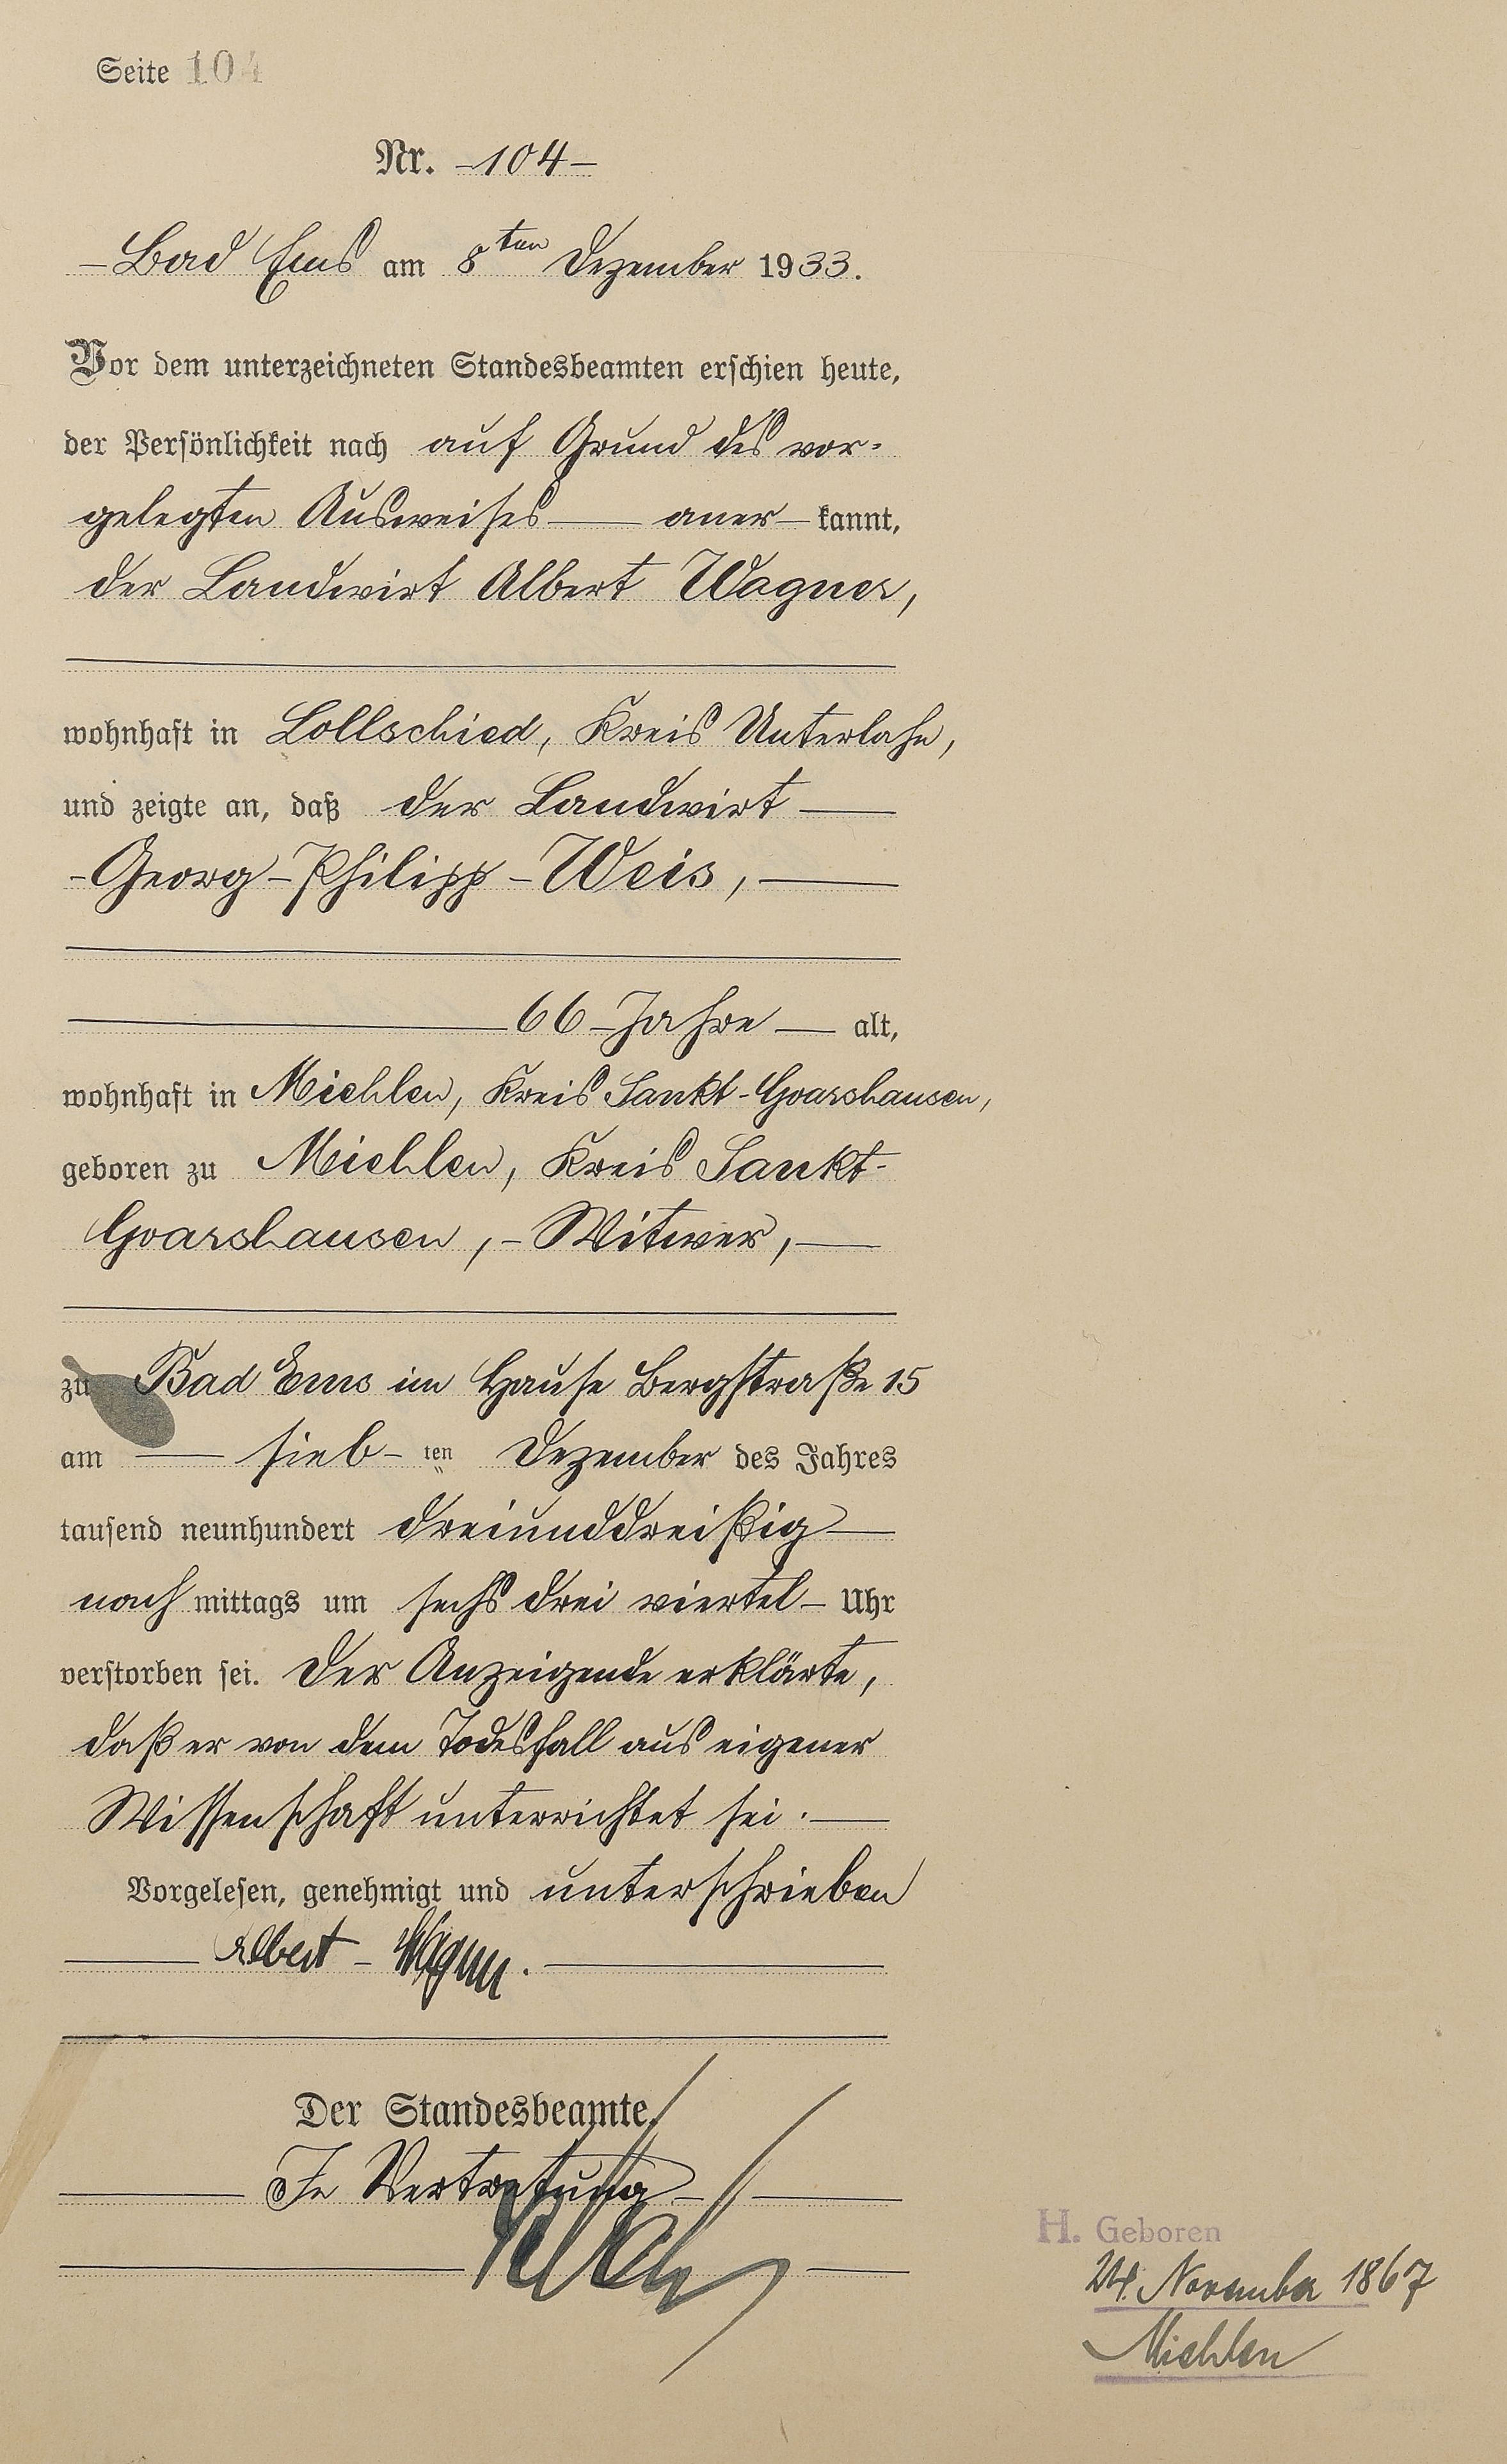 Seite 104
Nr. -104-
- Bad Ems am 8ten Dezember 1933.
Vor dem unterzeichneten Standesbeamten erschien heute,
der Persönlichkeit nach auf Grund des vor=
gelegten Ausweises — aner — kannt,
der Landwirt Albert Wagner,
wohnhaft in Lollschied, Kreis Unterlahn,
und zeigte an, daß der Landwirt —
- Georg - Philipp - Weis, —
— 66 - Jahre — alt,
wohnhaft in Miehlen, Kreis Sankt-Goarshausen,
geboren zu Miehlen, Kreis Sankt-
Goarshausen, - Witwer, —
zu Bad Ems im Hause Bergstraße 15
am — sieb - ten Dezember des Jahres
tausend neunhundert dreiunddreißig —
nach mittags um sechs drei viertel - Uhr
verstorben sei. Der Anzeigende erklärte,
daß er von dem Todesfall aus eigener
Wissenschaft unterrichtet sei. —
Vorgelesen, genehmigt und unterschrieben
— Albert - Wagner. —
Der Standesbeamte.
— In Vertretung —
H. Geboren
24. November 1867
Miehlen